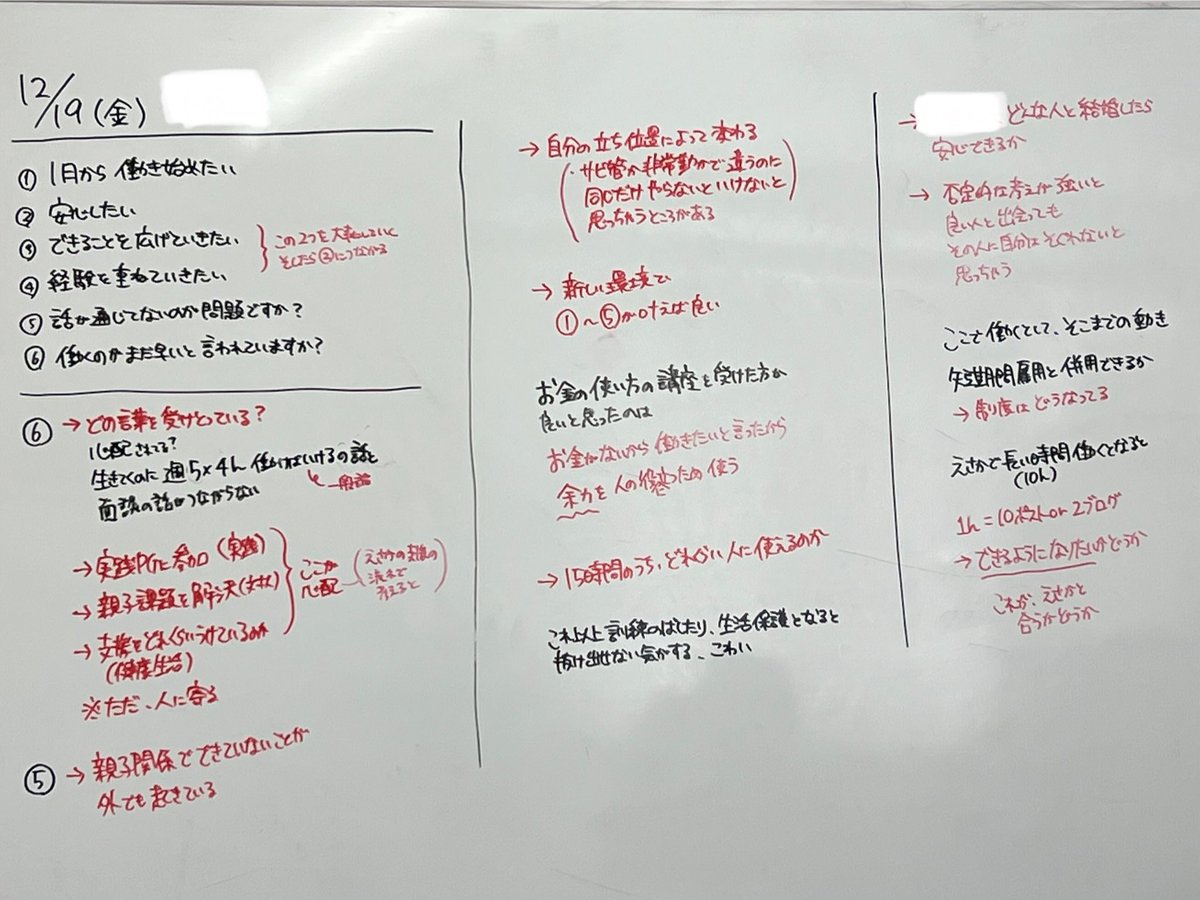 12/19(金)
① 1月から働き始めたい
② 安心したい
③ できることを広げていきたい
④ 経験を重ねていきたい
この2つを大事にしていく
そしたら②につながる
⑤ 話が通じてないのが問題ですか?
⑥ 働くのがまだ早いと言われていますか?
⑥ → どの言葉を受けとっている?
心配されてる?
生きてくのに週5×4h働ければいけるの話と
→一般論
面談の話がつながらない
→ 実践PGに参加(実践)
→ 親子課題を解決(対人)
→ 支援をどれくらいうけているのか
(健康生活)
ここが
心配
(えさかの支援の
流れで
考えると)
※ただ、人に寄る
⑤ → 親子関係でできていないことが
外でも起きている
→ 自分の立ち位置によって変わる
(・サビ管か非常勤かで違うのに
同じだけやらないといけないと
思っちゃうところがある)
→ 新しい環境で
①〜⑤が叶えば良い
お金の使い方の講座を受けた方が
良いと思ったのは
お金がないから働きたいと言ったから
余力を人の役立つため使う
→ 15時間のうち、どれぐらい人に使えるのか
これ以上訓練のばしたり、生活保護となると
抜け出せない気がする、こわい
→ どんな人と結婚したら
安心できるか
→ 否定的な考えが強いと
良い人と出会っても
その人に自分はそぐわないと
思っちゃう
ここで働くとして、そこまでの動き
短期間雇用と併用できるか
→ 制度はどうなってる
えさかで長い時間働くとなると
(10h)
1h=10ポストor2ブログ
→ できるようになりたいかどうか
これが、えさかと
合うかどうか